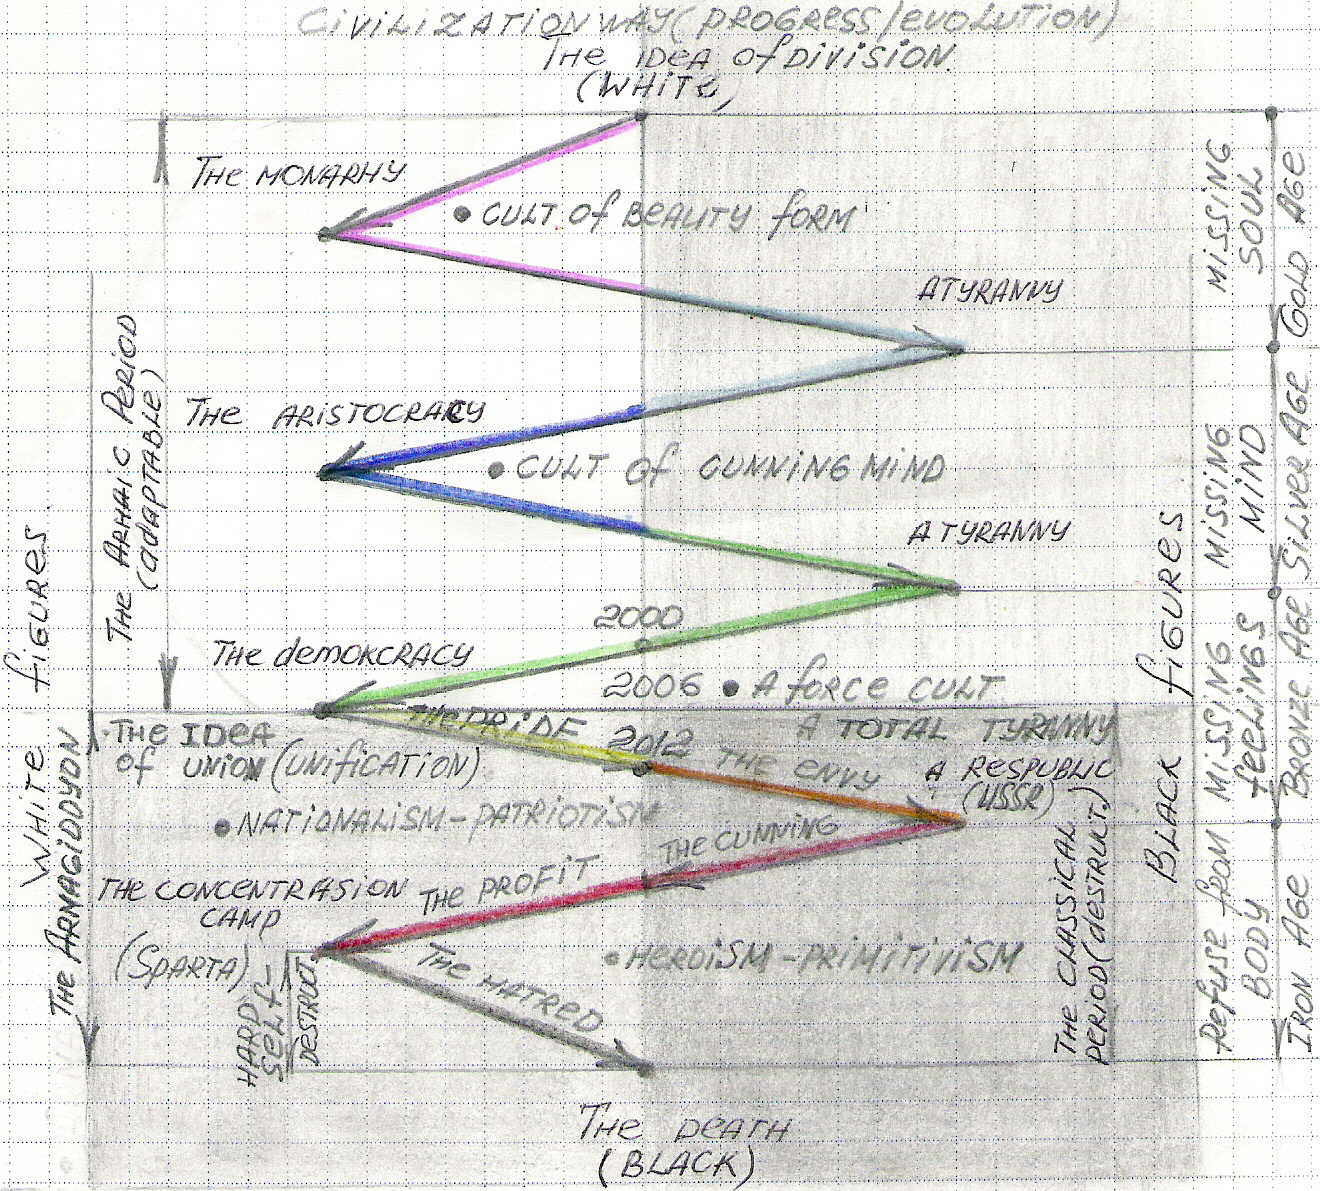 CIVILIZATION WAY (PROGRESS/EVOLUTION)
THE IDEA of DIVISION
(WHITE)
THE MONARHY
CULT of BEAUTY form
A TYRANNY
THE ARISTOCRACY
CULT Of CUNNING MIND
A TYRANNY
2000
THE demoKCRACY
2006
A force CULT
THE PRIDE
2012
THE ENVY
A TOTAL TYRANNY
A RESPUBLIC
(USSR)
THE IDEA
of UNION (UNificATiON)
NATIONALISM-PATRIOTISM
THE CUNNING
THE PROFIT
THE CONCENTRASION
CAMP
(SPARTA)
THE HATRED
HEROISM-PRIMITIVISM
HARD
SELF-
DESTRUCT
THE DEATH
(BLACK)
WHITE figURES
THE ARHAIC PERIOD
(adAPTABLE)
THE ARMAGIDDYON
THE CLASSICAL
PERIOD (dESTRUKT)
BLACK figURES
MISSING
SOUL
MISSING
MIND
MISSING
feeLINGS
Refuse from
BODY
GOLD AGE
SILVER AGE
BRONZE AGE
IRON AGE